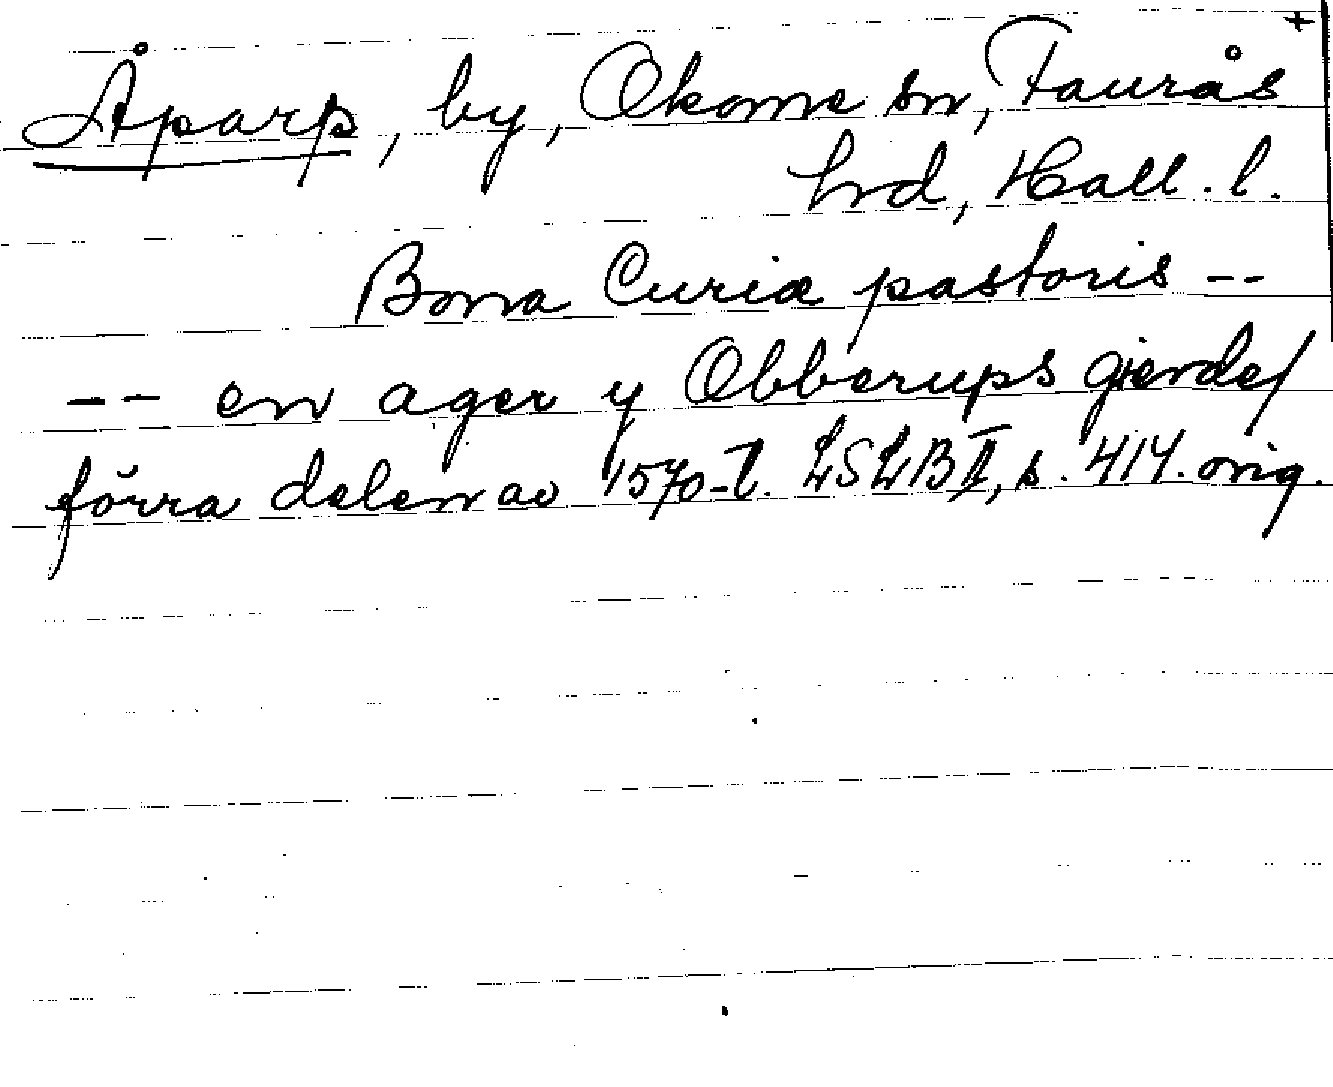 +
Åparp, by, Okome sn, Faurås
hrd, Hall. l.
Bona Curiæ pastoris --
-- en ager y Obberups gierde/
förra delen av 1570-t. LSLB II, s. 414. orig.